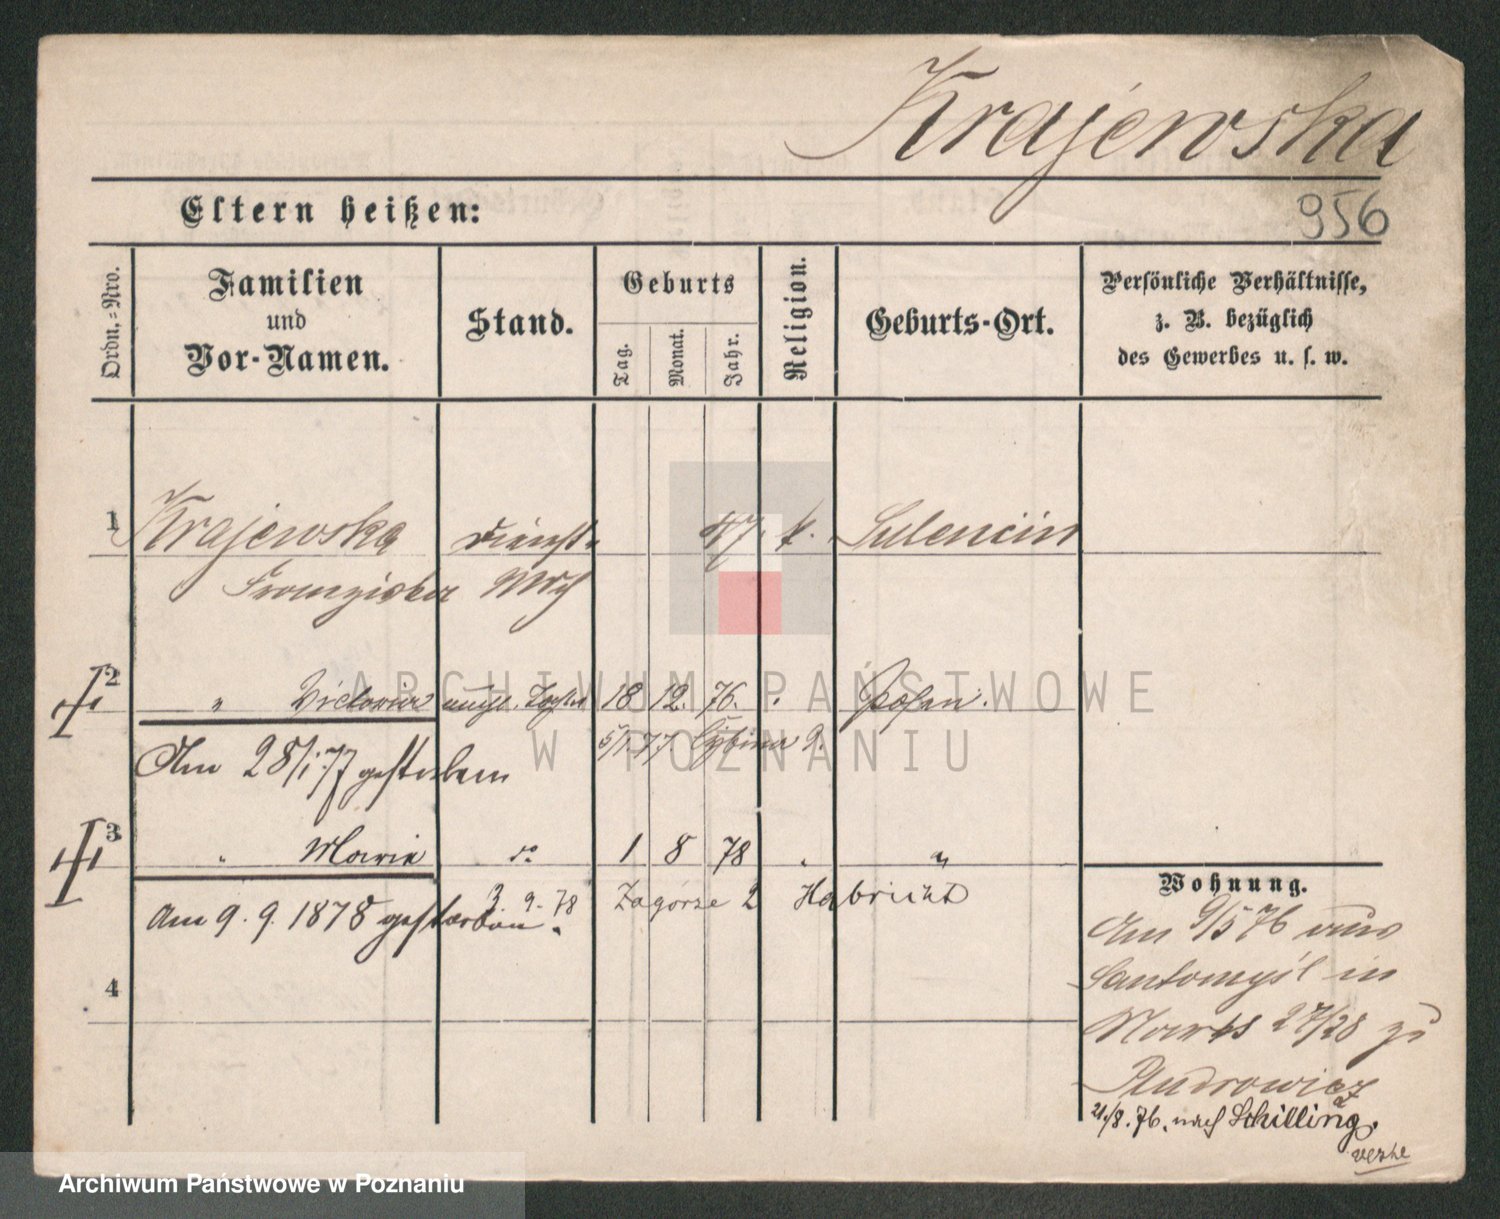 Krajewska
956
Eltern heißen:
Ordn.=Nro.
Familien
und
Vor-Namen.
Stand.
Geburts
Tag.
Monat.
Jahr.
Religion.
Geburts-Ort.
Persönliche Verhältnisse,
z. B. bezüglich
des Gewerbes u. s. w.
1 Krajewska Dienst- 47. k. Sulencin
Franziska
2 " Victoria 18 12. 76. Posen.
5/1 77 Cybina 9.
Am 28/1 77 gestorben
3 " Marie do 1 8 78 "
3. 9. 78 Zagórze 2 Habricht
Am 9. 9. 1878 gestorben.
4
Wohnung.
Am 9/5 76 aus
Santomyśl in
Markt 27/28 zu
Androwicz
21./8. 76. nach Schilling.
verhe
ARCHIWUM PAŃSTWOWE
W POZNANIU
Archiwum Państwowe w Poznaniu